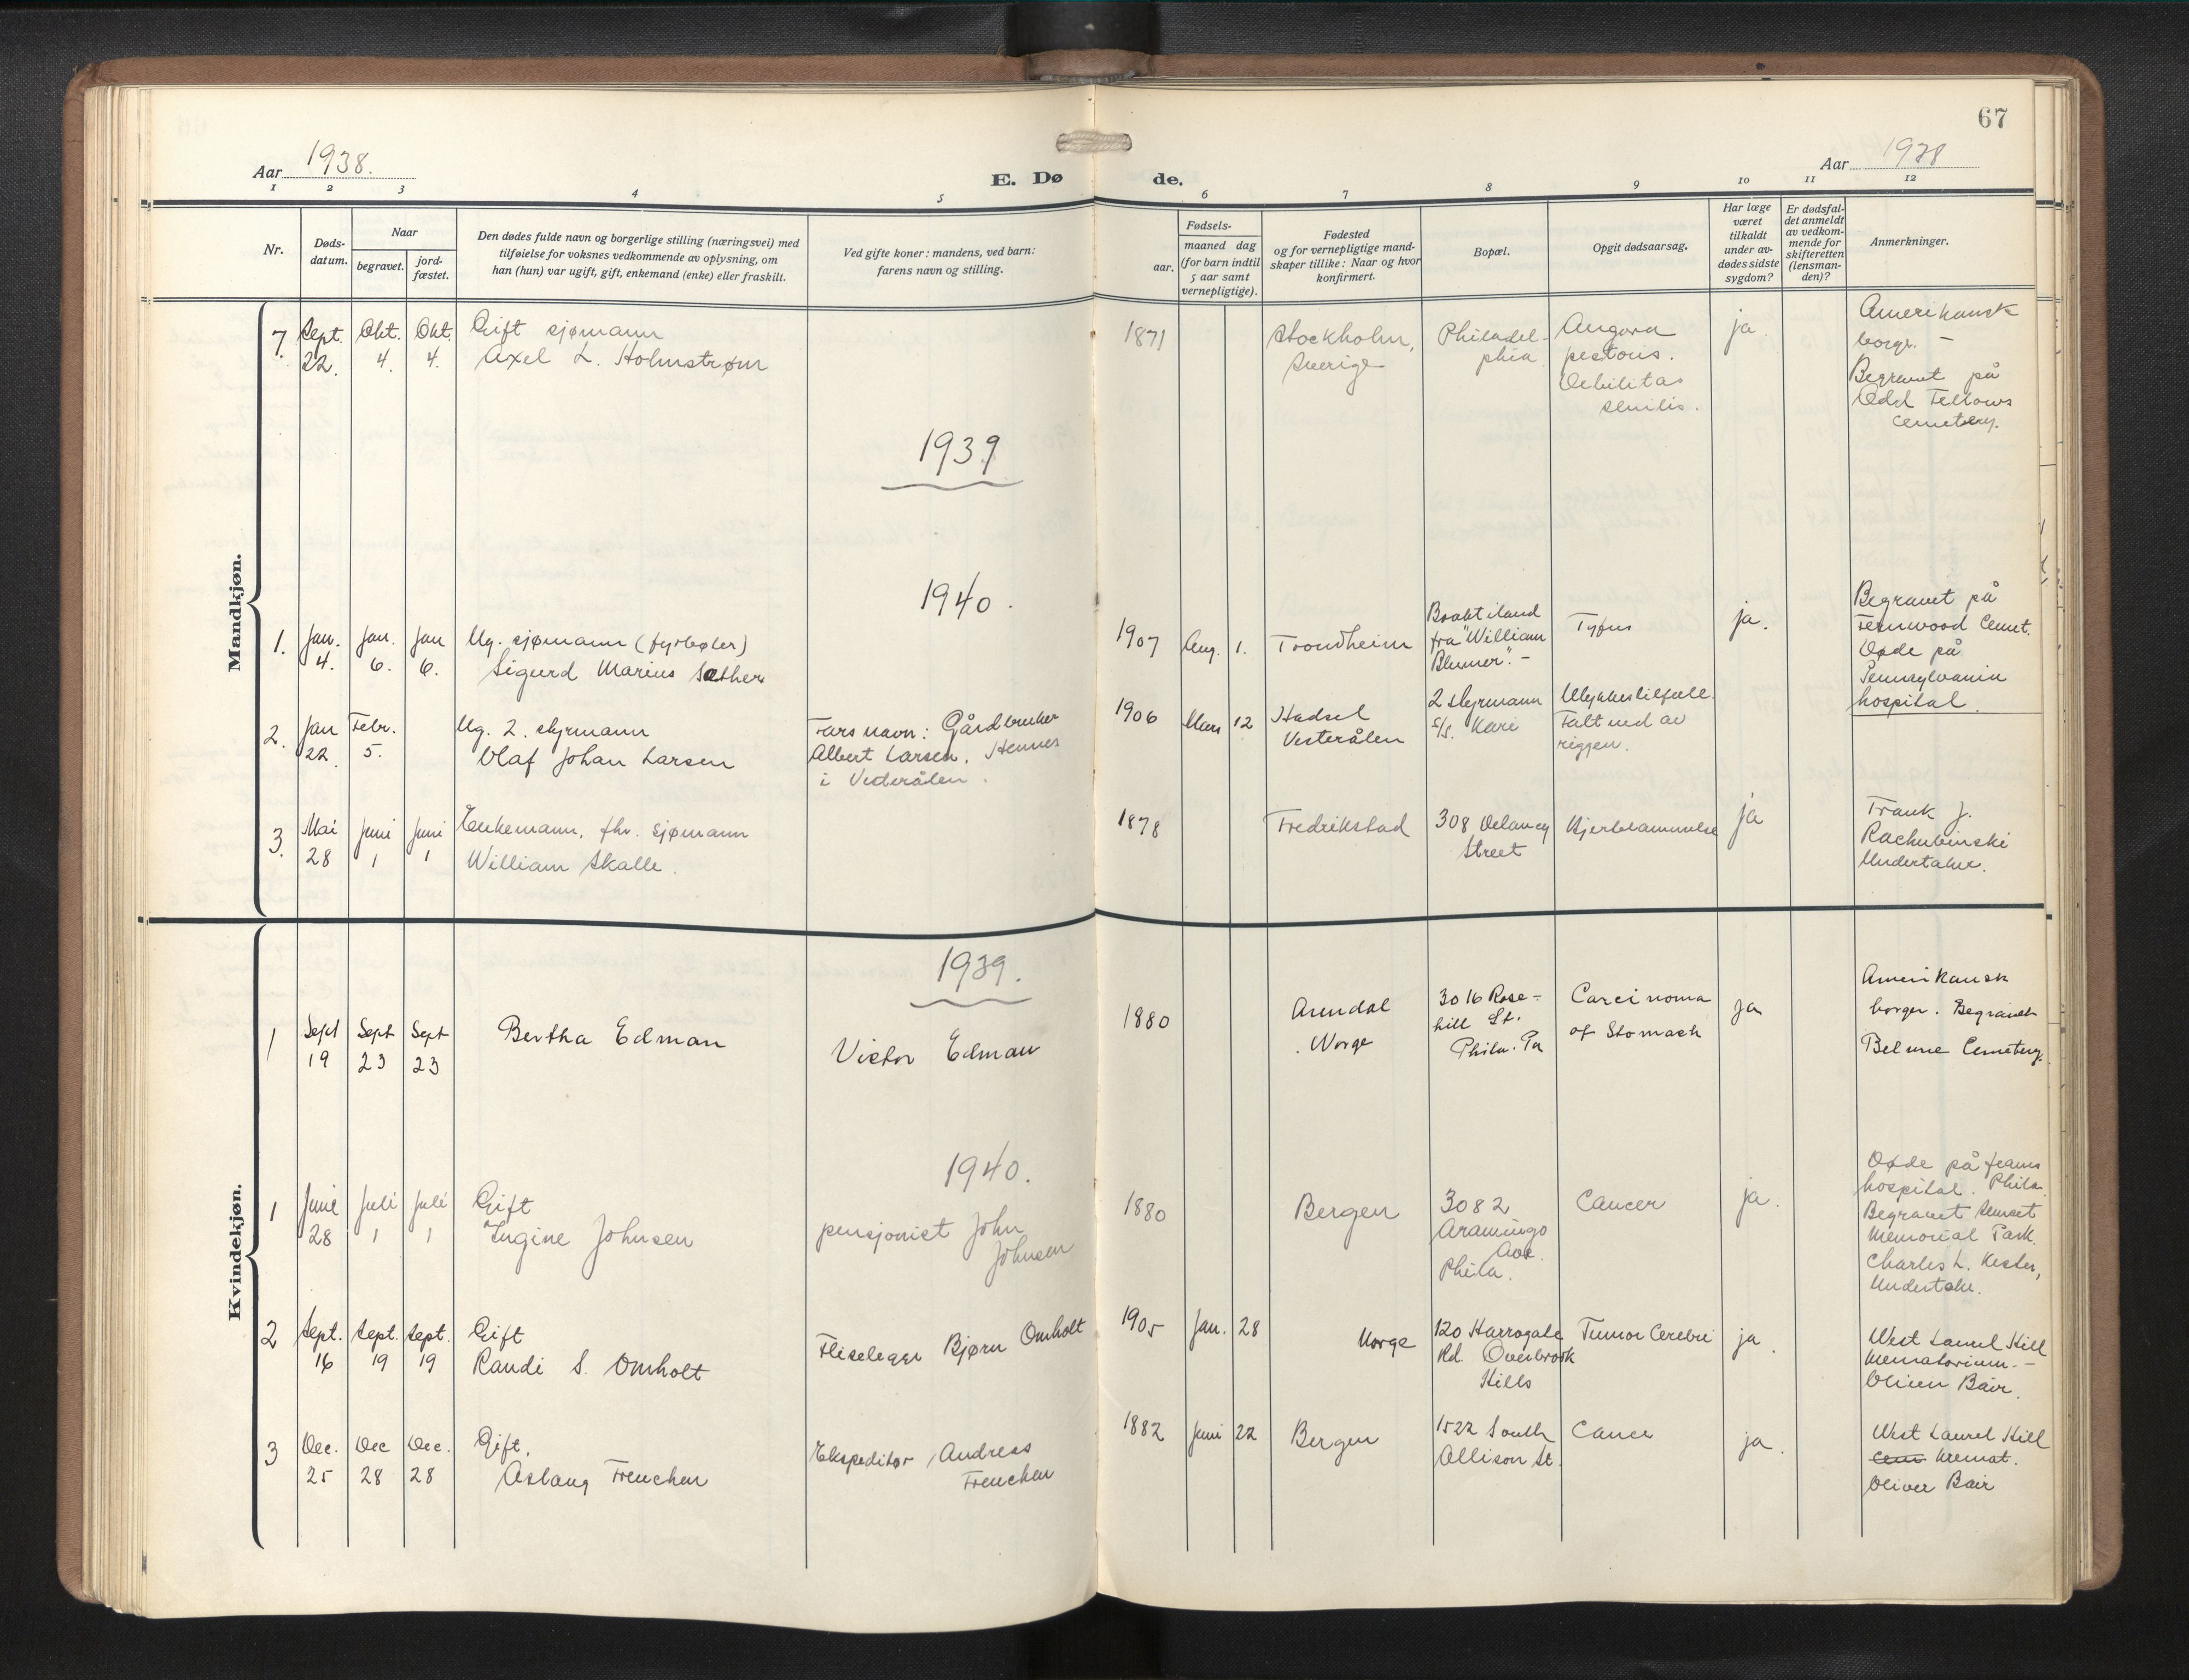 67
Aar 1938.
E. Dø de.
Aar 1938
1 2 3 4 5 6 7 8 9 10 11 12
Nr.
Døds-
datum.
Naar
begravet.
jord-
fæstet.
Den dødes fulde navn og borgerlige stilling (næringsvei) med
tilføielse for voksnes vedkommende av oplysning, om
han (hun) var ugift, gift, enkemand (enke) eller fraskilt.
Ved gifte koner: mandens, ved barn:
farens navn og stilling.
Fødsels-
aar.
maaned dag
(for barn indtil
5 aar samt
vernepligtige).
Fødested
og for vernepligtige mand-
skaper tillike: Naar og hvor
konfirmert.
Bopæl.
Opgit dødsaarsag.
Har læge
været
tilkaldt
under av-
dødes sidste
sygdom?
Er dødsfal-
det anmeldt
av vedkom-
mende for
skifteretten
(lensman-
den)?
Anmerkninger.
Mandkjøn.
7. Sept. 22. Okt. 4. Okt. 4.
Gift sjømann
Axel L. Holmstrøm
1871
Stockholm,
Sverige
Philadel-
phia
Angora
pectoris.
Debilitas
senilis.
ja.
Amerikansk
borgr. -
Begravet på
Odd Fellows
Cemetery.
1939
1940.
1. Jan. 4. Jan. 6. Jan 6.
Ug. sjømann (fyrbøter)
Sigurd Marius Sæther
1907 Aug. 1.
Trondheim
Brakt iland
fra "William
Blumer". -
Tyfus
ja.
Begravet på
Fernwood Cemet.
Døde på
Pennsylvania
hospital.
2. Jan 22. Febr. 5.
Ug. 2. styrmann
Olaf Johan Larsen
Fars navn: Gårdbruker
Albert Larsen, Hennes
i Vesterålen.
1906 Mars 12
Hadsel
Vesterålen
2 styrmann
S/S. Kari
Ulykkestilfelle.
Falt ned av
riggen.
3. Mai 28 Juni 1 Juni 1
Enkemann, fhv. sjømann
William Skalle.
1878
Fredrikstad
308 Delancy
Street
Hjertelammelse
ja
Frank J.
Rachubinski
Undertaker.
Kvindekjøn.
1939.
1 Sept 19 Sept 23 Sept 23
Bertha Edman
Victor Edman
1880
Arendal
Norge
3016 Rose-
hill St.
Phila. Pa
Carcinoma
of Stomach
ja
Amerikansk
borger. Begravet
Cemetery.
1940.
1 Juni 28 Juli 1 Juli 1
Gift
Ingine Johnsen
pensjonist John
Johnsen
1880
Bergen
3082
Aramingo
Ave.
Phila.
Cancer
ja.
Døde på Jeanes
hospital. Phila.
Begravet Sunset
Memorial Park.
Charles L. Kester,
Undertaker.
2 Sept. 16 Sept. 19 Sept. 19
Gift
Randi S. Omholt
Fliselegger Bjørn Omholt
1905 Jan. 28
Norge
120 Harrogate
Rd. Overbrook
Hills
Tumor Cerebri
ja.
West Laurel Hill
Krematorium. -
Oliver Bair.
3 Dec. 25 Dec 28 Dec. 28
Gift.
Aslaug Frenchen
Ekspeditør Andreas
Frenchen
1882 Juni 22
Bergen
1522 South
Allison St.
Cancer
ja.
West Laurel Hill
Cem Kremat.
Oliver Bair